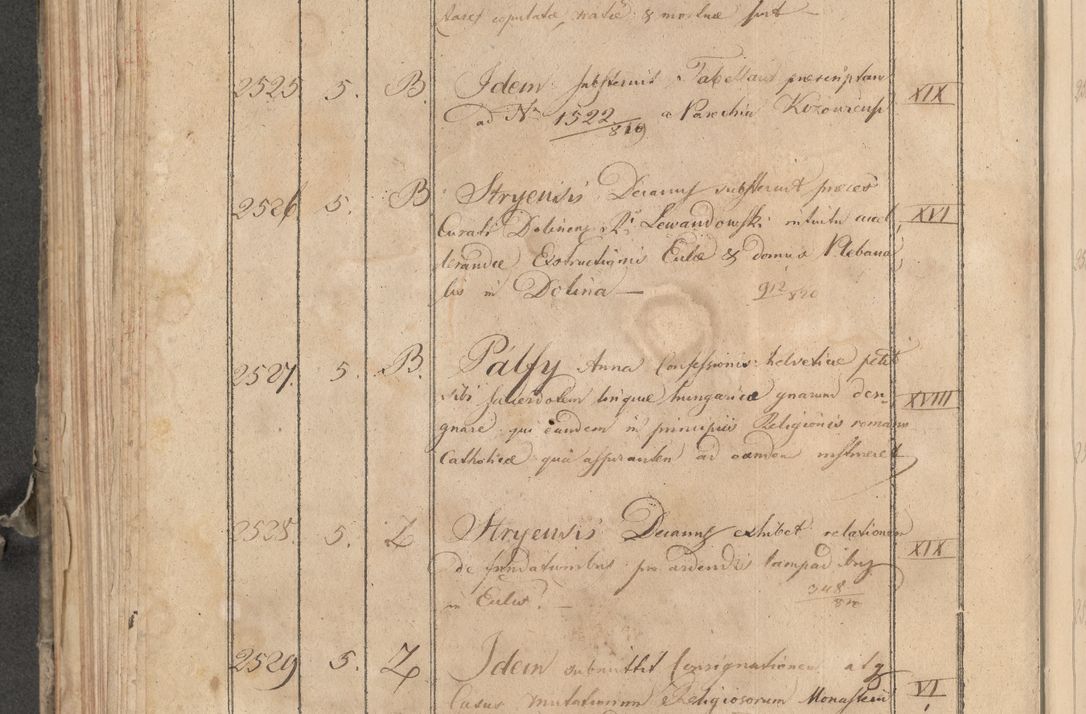 tares copulatae, natae & mortuae sunt —
2525 5. B. Idem substernit Tabellam praescriptam XIX
ad Nr 1522/819 a Parochia Kozoviensi
2526 5. B Stryensis Decanus substernit preces XVI
Curati Dolinens. Lewandowski intuitu accel
lerandae Exstructionis Eccle & domus Plebana
lis in Dolina — 912/820
2527. 5. B. Palfy Anna Confessionis helvetiae petit XVIII
sibi sacerdotem linquae hungaricae gnarum desi
gnare qui eandem in principiis Religionis romano
Catholicae qua aspirantem ad eandem instrueret
2528. 5. Z Stryensis Decanus exhibet relationem XIX
de fundationibus pro ardendis lampadibus
in Eccliis. — 348/820
2529 5. Z. Idem submittit Consignationem alg VI
Casus mutationum Religiosorum Monasterii